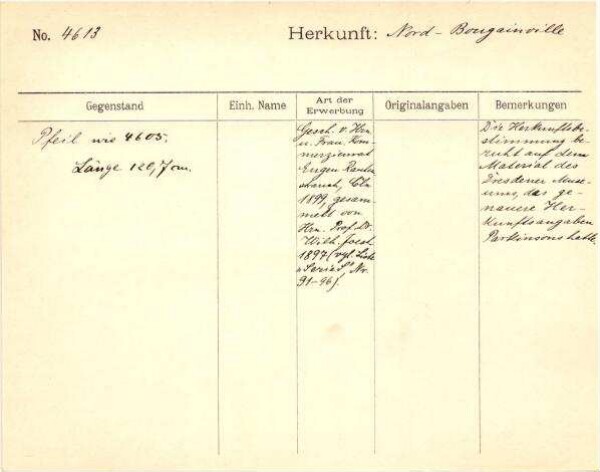 No. 4613
Herkunft: Nord-Bougainville
Gegenstand
Einh. Name
Art der
Erwerbung
Originalangaben
Bemerkungen
Pfeil wie 4605.
Länge 120,7 cm.
Gesch. v. Hrn
u. Frau Kom-
merzienrat
Eugen Rauten-
strauch, Cöln
1899, gesam-
melt von
Hrn. Prof. Dr.
Wilh. Joest
1897 (vgl. Liste
"Series" Nr.
91-96).
Die Herkunftsbe-
stimmung be-
ruht auf dem
Material des
Dresdener Muse-
ums, das ge-
nauere Her-
kunftsangaben
Parkinsons hatte.